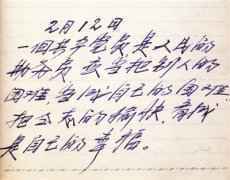 2月12日
一个共产党员,是人民的
勤务员,应当把别人的
困难,当成自己的困难,
把公志的愉快,看成
是自己的幸福。